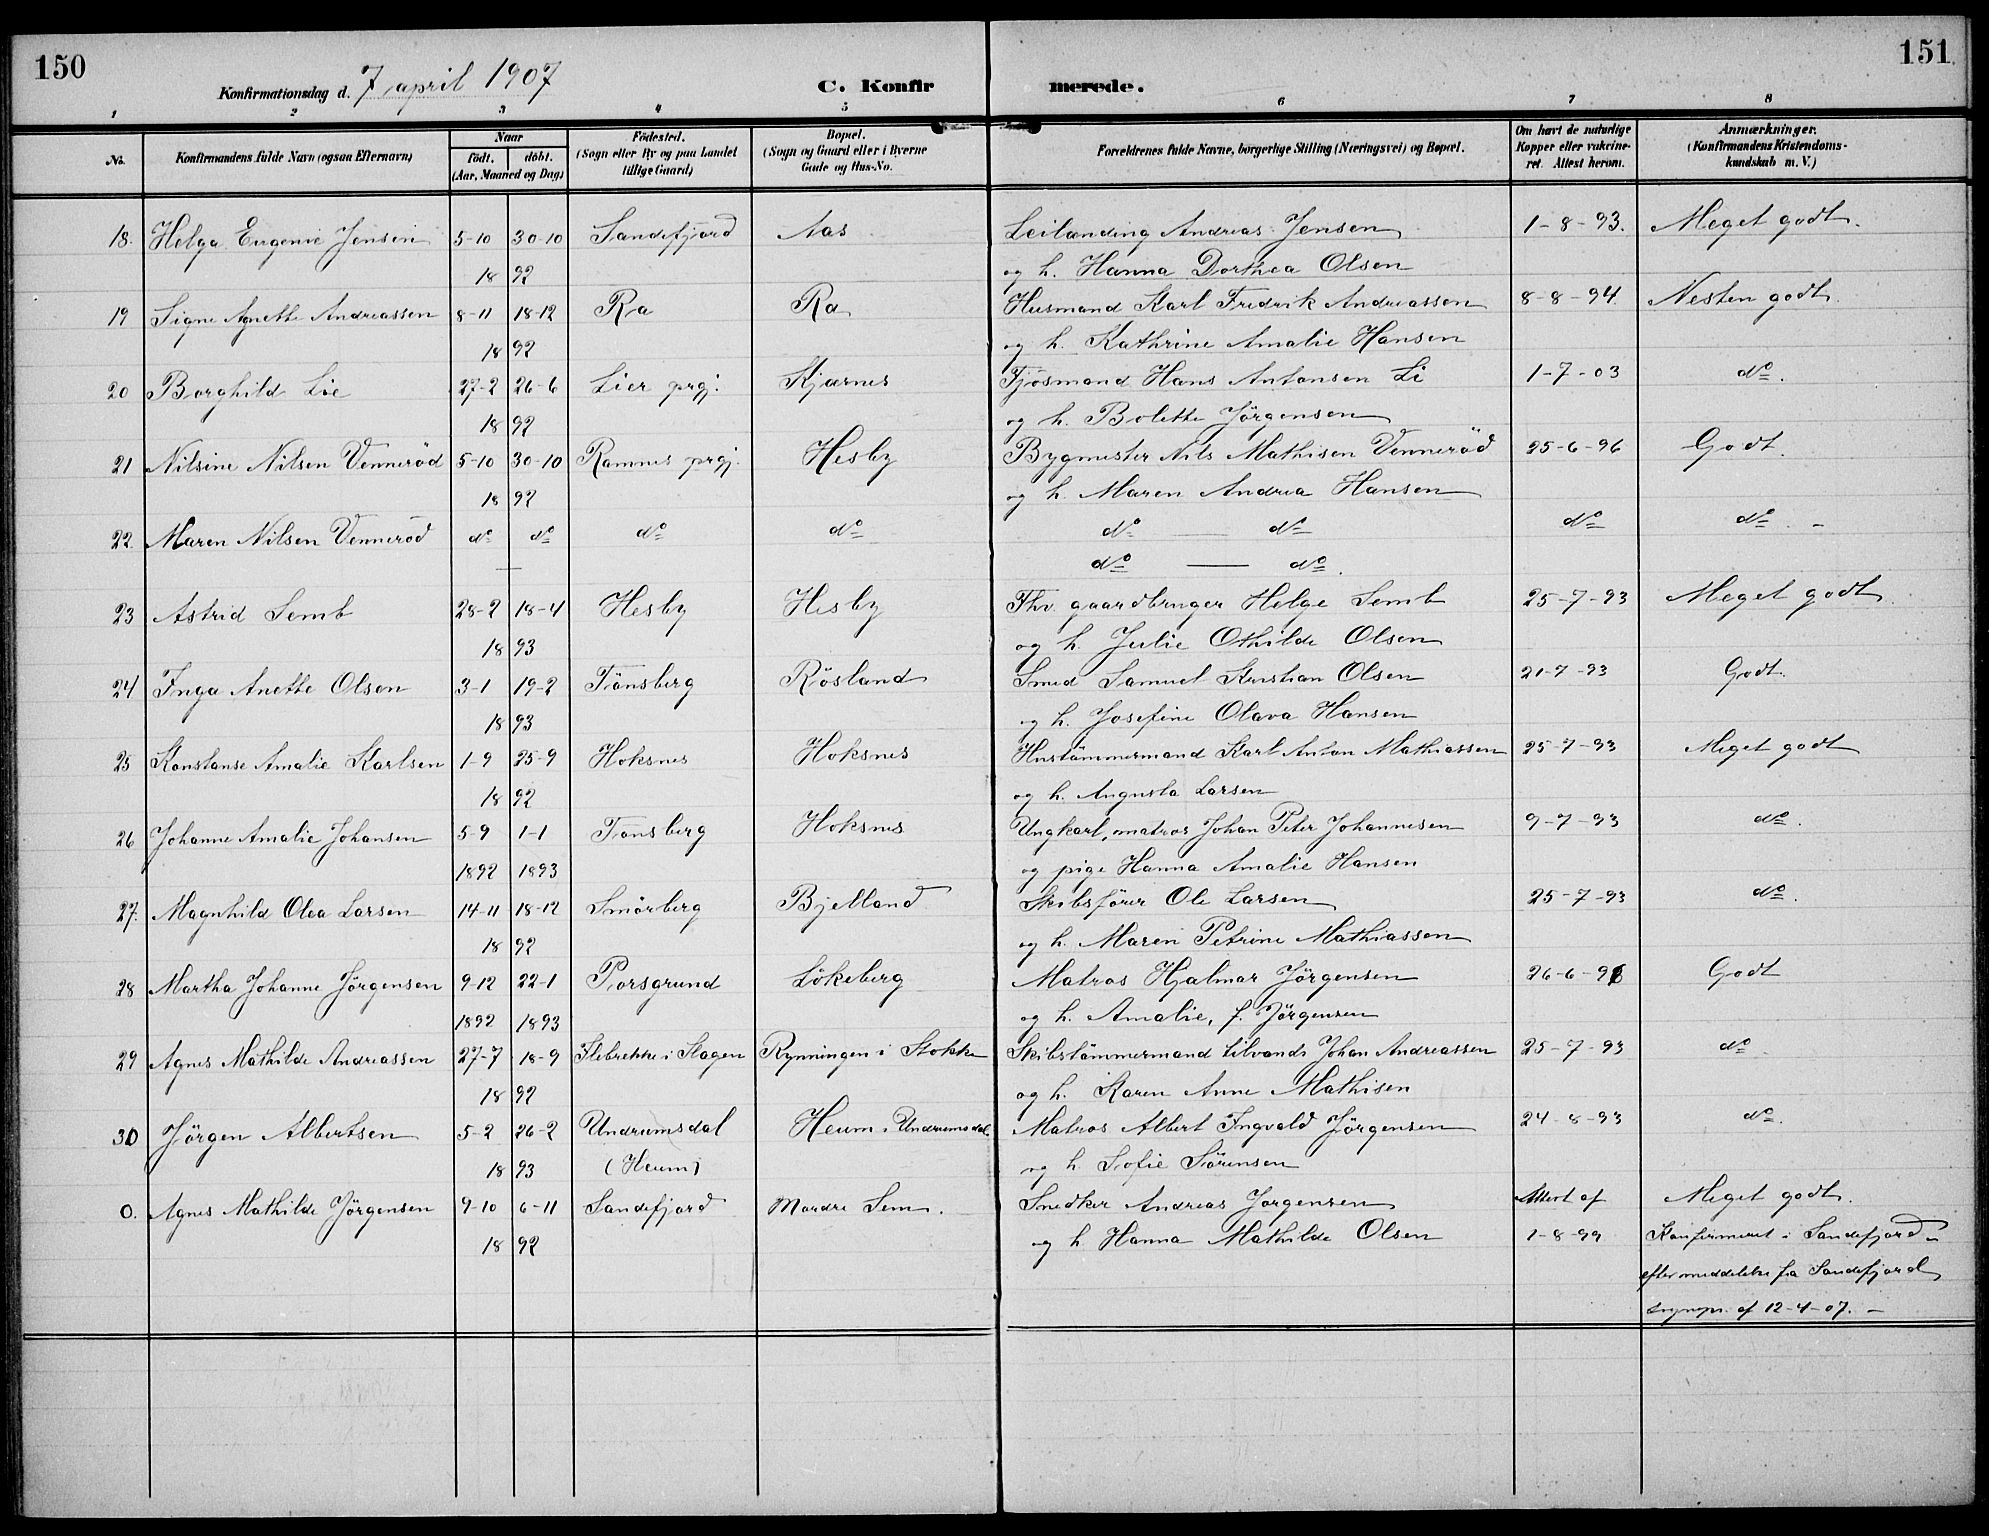 150
151
Konfirmationsdag d. 7 april 1907
C. Konfir
merede.
1 2 3 4 5 6 7 8
No.
Konfirmandens fulde Navn (ogsaa Efternavn)
Naar
født. døbt.
(Aar, Maaned og Dag)
Fødested.
(Sogn eller By og paa Landet
tillige Gaard)
Bopæl.
(Sogn og Gaard eller i Byerne
Gade og Hus-No.
Forældrenes fulde Navne, borgerlige Stilling (Næringsvei) og Bopæl.
Om havt de naturlige
Kopper eller vakcine-
ret. Attest herom.
Anmærkninger.
(Konfirmandens Kristendoms-
kundskab m. V.)
18. Helga Eugenie Jensen 5-10 30-10 Sandefjord Aas Leilænding Andreas Jensen 1-8-93. Meget godt.
18 92 og h. Hanna Dorthea Olsen
19 Signe Agnette Andreassen 8-11 18-12 Ra Ra Husmand Karl Fredrik Andreassen 8-8-94. Nesten godt.
18 92 og h. Kathrine Amalie Hansen
20 Borghild Lie 27-2 26-6 Lier prgj. Kjærnes Fjösmand Hans Antonsen Li 1-7-03 do.
18 92 og h. Bolette Jörgensen
21 Nilsine Nilsen Venneröd 5-10 30-10 Ramnes prgj. Hesby Bygmester Nils Mathisen Venneröd 25-6-96 Godt.
18 92 og h. Maren Andrea Hansen
22. Maren Nilsen Venneröd do do do do do — do do do. –
— do — do.
23 Astrid Semb 28-2 18-4 Hesby Hesby Fhv. gaardbruger Helge Semb 25-7-93 Meget godt
18 93 og h. Julie Othilde Olsen
24 Inga Anette Olsen 3-1 19-2 Tönsberg Rösland Smed Samuel Kristian Olsen 21-7-93 Godt.
18 93 og h. Josefine Olava Hansen
25 Konstanse Amalie Karlsen 1-9 25-9 Hoksnes Hoksnes Hustömmermand Karl Anton Mathiassen 25-7-93 Meget godt
18 92 og h. Augusta Larsen
26 Johanne Amalie Johansen 5-9 1-1 Tönsberg Hoksnes Ungkarl, matros Johan Peter Johannesen 9-7-93 do.
1892 1893 og pige Hanna Amalie Hansen
27. Magnhild Olea Larsen 14-11 18-12 Smörberg Bjelland Skibsförer Ole Larsen 25-7-93 do.
18 92 og h. Maren Petrine Mathiassen
28 Martha Johanne Jörgensen 9-12 22-1 Porsgrund Lökeberg Matros Hjalmar Jörgensen 26-6-96 Godt
1892 1893 og h. Amalie, f. Jörgensen
29 Agnes Mathilde Andreassen 27-7 18-9 Flebrekke i Slagen Rynningen i Stokke Skibstömmermand tilvands Johan Andreassen 25-7-93 do
18 92 og h. Karen Anne Mathisen
30 Jörgen Albertsen 5-2 26-2 Undrumsdal Heum i Undrumsdal. Matros Albert Ingvald Jörgensen 24-8-93 do.
18 93 (Heum) og h. Sofie Sörensen
0. Agnes Mathilde Jörgensen 9-10 6-11 Sandefjord Mordre Sem. Snedker Andreas Jörgensen Attest af Meget godt.
18 92 og h. Hanna Mathilde Olsen 1-8-99 Konfirmeret i Sandefjord
efter meddelelse fra Sandefjord
sognepr. af 12-4-07. –